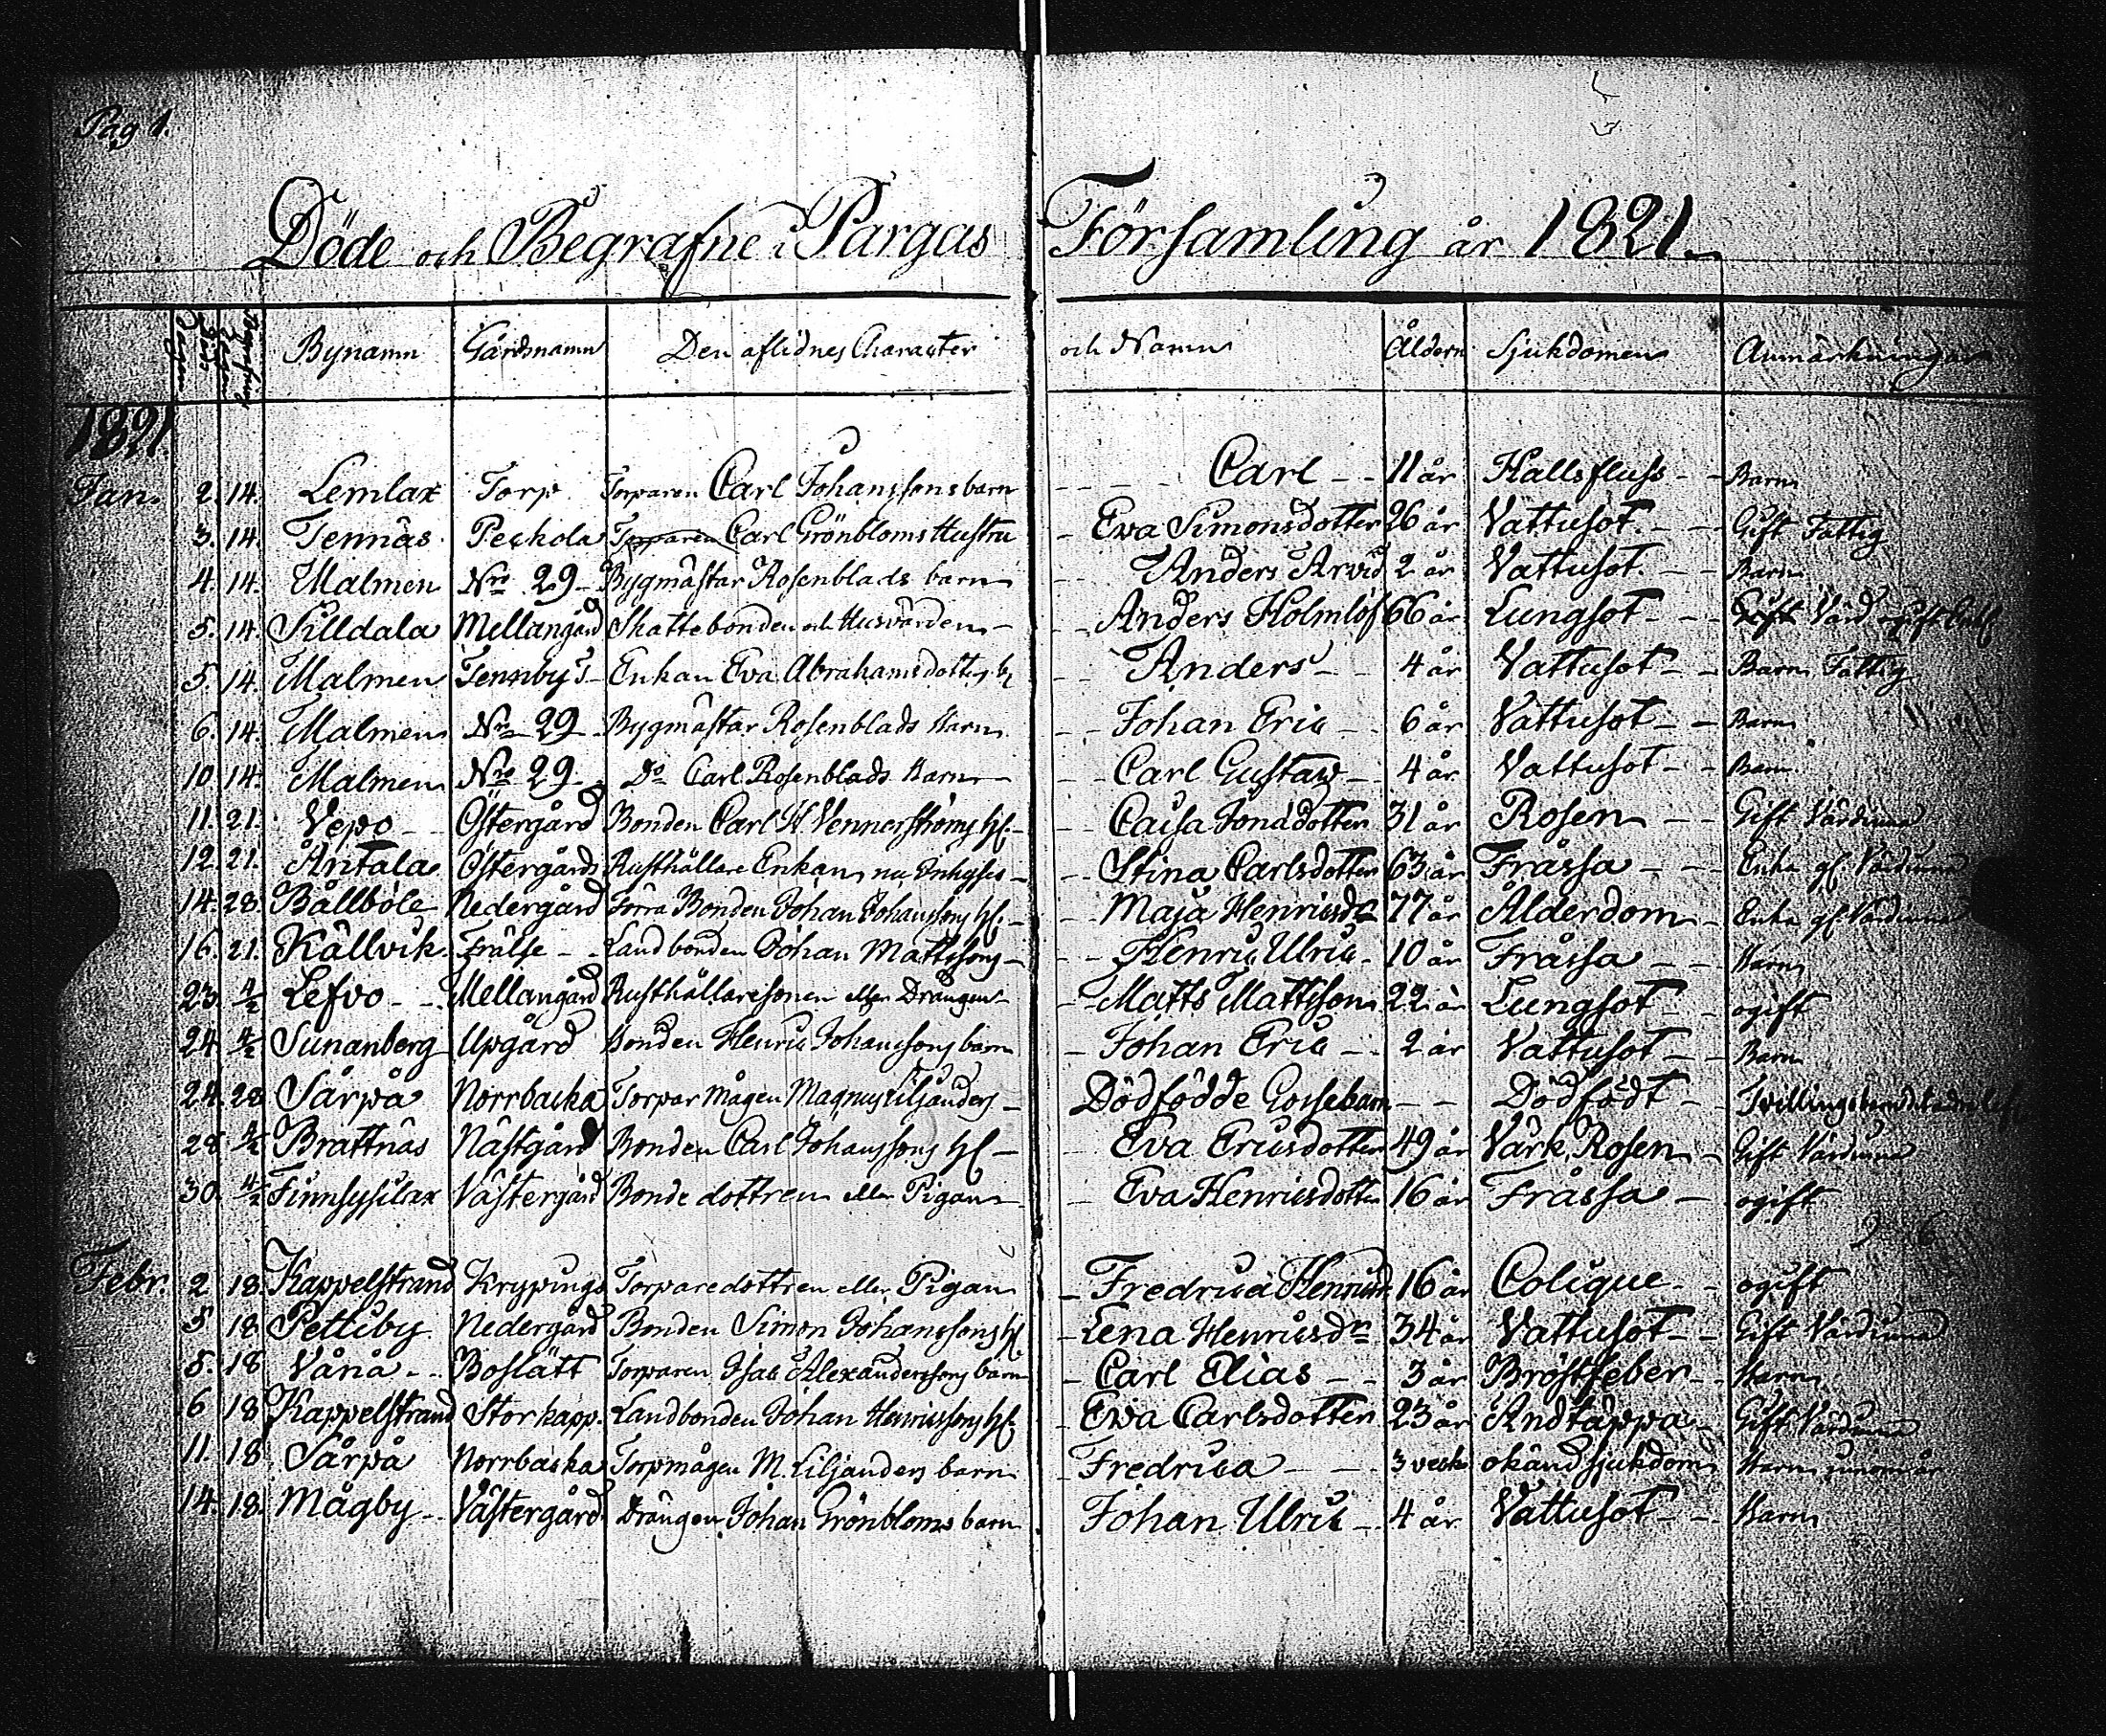 Pag 1.
Döde och Begrafne i Pargas Församling år 1821.
Bynamn Gårdsnamn Den aflidnes Character och Namn Åldern Sjukdomen Anmärkningar
1821
Jan. 2. 14. Lemlax Torp Torparen Carl Johanssons barn Carl 11 år Hallsfluss Barn
3. 14. Tennäs Peckola Torparen Carl Grönbloms Hustru Eva Simonsdotter 26 år Vattusot. Gift Fattig
4. 14. Malmen Nro 29 Bygmästar Rosenblads barn Anders Arvid 2 år Vattusot. Barn
5. 14. Silldala Mellangård Skattebonden och Husvärden Anders Holmlöf 66 år Lungsot Gift Värd
5. 14. Malmen Tennbys Enkan Eva Abrahamsdotters b Anders 4 år Vattusot Barn Fattig
6. 14. Malmen Nro 29 Bygmästar Rosenblads Barn Johan Eric 6 år Vattusot Barn
10. 14. Malmen Nro 29 Do Carl Rosenblads Barn Carl Gustaw 4 år Vattusot Barn
11. 21. Vepo Östergård Bonden Carl H Vennerströms hf. Caisa Jonasdotter 31 år Rosen Gift Värdinna
12. 21. Antala Östergårds Rusthållare Enkan nu Inhyses Stina Carlsdotter 63 år Fråssa Enka gf. Värdinna
14. 28. Bållböle Nedergård Förra Bonden Johan Johanssons hf. Maja Henricsdr 77 år Ålderdom Enka gf. Värdinna
16. 21. Källvik Frälse Landbonden Johan Mattssons Henric Ulric 10 år Fråssa Barn
23. 4/2 Lefvo Mellangård Rusthållaresonen eller Drängen Matts Mattsson 22 år Lungsot ogift
24. 4/2 Sunanberg Upgård Bonden Henric Johanssons barn Johan Eric 2 år Vattusot Barn
24. 28 Särpå Norrbacka Torpar Mågen Magnus Liljanders Dödfödde Gossebarn Dödfödt
28. 4/2 Brattnäs Nästgård Bonden Carl Johanssons hf Eva Ericsdotter 49 år Värk, Rosen Gift Värdinna
30. 4/2 Finnsysilax Västergård Bonde dottren eller Pigan Eva Henricsdotter 16 år Fråssa ogift
Febr. 2 18. Kappelstrand Krypings Torparedottren eller Pigan Fredrica Henricsd 16 år Colique ogift
5 18 Pettiby Nedergård Bonden Simon Johanssons hf. Lena Henricsdr 34 år Vattusot Gift Värdinna
5. 18 Vånå Boslätt Torparen Isac Alexanderssons barn Carl Elias 3 år Bröstfeber Barn
6 18 Kappelstrand Storkapp. Landbonden Johan Henricssons hf. Eva Carlsdotter 23 år Andtäppa Gift Värdinna
11. 18 Särpå Norrbacka Torpmågen M. Liljanders barn Fredrica 3 veck okänd sjukdom Barn inom år
14. 18. Mågby Västergård Drängen Johan Grönbloms barn Johan Ulric 4 år Vattusot Barn